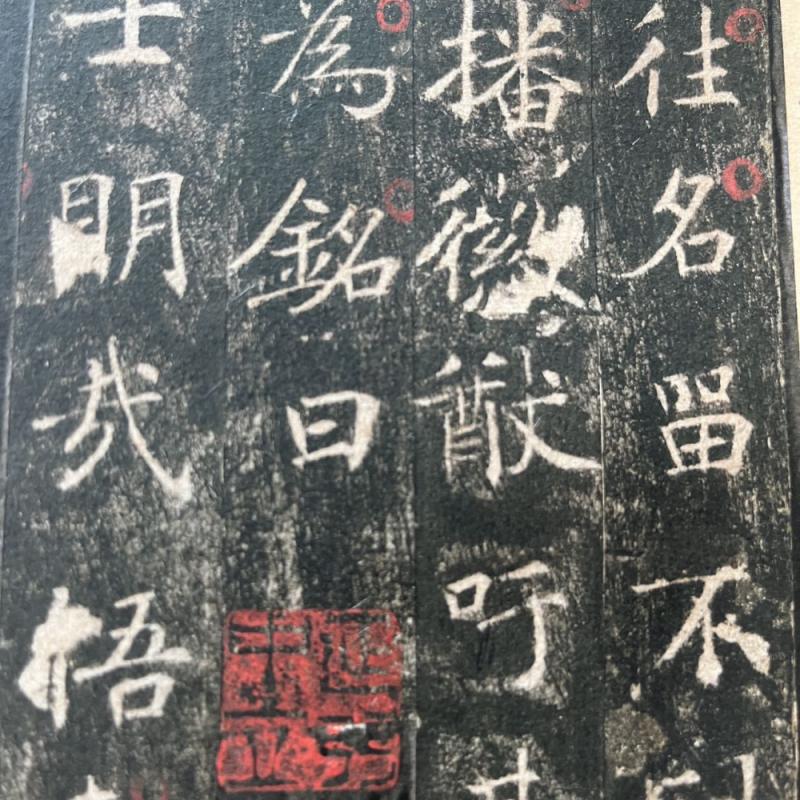 往名留不
播徽猷吁
為銘曰
士明哉悟